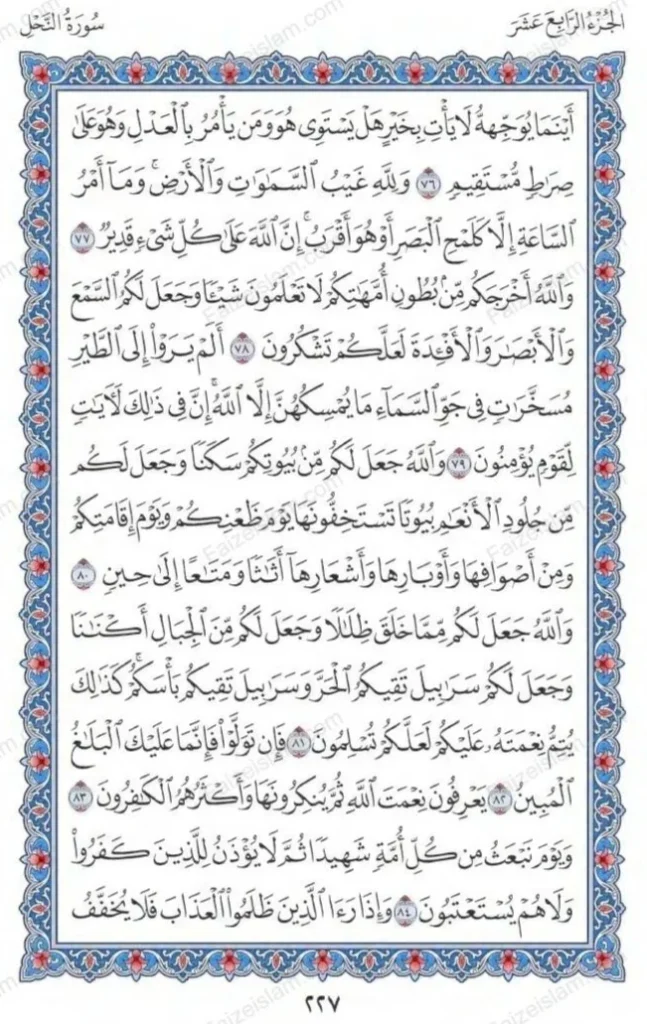 الجزء الرابع عشر
سورة النحل
أَيْنَمَا يُوَجِّههُّ لَا يَأْتِ بِخَيْرٍ هَلْ يَسْتَوِى هُوَ وَمَن يَأْمُرُ بِالْعَدْلِ وَهُوَ عَلَىٰ
صِرَاطٍ مُّسْتَقِيمٍ ٧٦ وَلِلَّهِ غَيْبُ السَّمَاوَاتِ وَالْأَرْضِ ۚ وَمَا أَمْرُ
السَّاعَةِ إِلَّا كَلَمْحِ الْبَصَرِ أَوْ هُوَ أَقْرَبُ ۚ إِنَّ اللَّهَ عَلَىٰ كُلِّ شَىْءٍ قَدِيرٌ ٧٧
وَاللَّهُ أَخْرَجَكُم مِّنۢ بُطُونِ أُمَّهَاتِكُمْ لَا تَعْلَمُونَ شَيْئًا وَجَعَلَ لَكُمُ السَّمْعَ
وَالْأَبْصَارَ وَالْأَفْئِدَةَ لَعَلَّكُمْ تَشْكُرُونَ ٧٨ أَلَمْ يَرَوْا إِلَى الطَّيْرِ
مُسَخَّرَاتٍ فِى جَوِّ السَّمَاءِ مَا يُمْسِكُهُنَّ إِلَّا اللَّهُ ۗ إِنَّ فِى ذَٰلِكَ لَآيَاتٍ
لِّقَوْمٍ يُؤْمِنُونَ ٧٩ وَاللَّهُ جَعَلَ لَكُم مِّنۢ بُيُوتِكُمْ سَكَنًا وَجَعَلَ لَكُم
مِّن جُلُودِ الْأَنْعَامِ بُيُوتًا تَسْتَخِفُّونَهَا يَوْمَ ظَعْنِكُمْ وَيَوْمَ إِقَامَتِكُمْ
وَمِنْ أَصْوَافِهَا وَأَوْبَارِهَا وَأَشْعَارِهَا أَثَاثًا وَمَتَاعًا إِلَىٰ حِينٍ ٨٠
وَاللَّهُ جَعَلَ لَكُم مِّمَّا خَلَقَ ظِلَالًا وَجَعَلَ لَكُم مِّنَ الْجِبَالِ أَكْنَانًا
وَجَعَلَ لَكُمْ سَرَابِيلَ تَقِيكُمُ الْحَرَّ وَسَرَابِيلَ تَقِيكُم بَأْسَكُمْ ۚ كَذَٰلِكَ
يُتِمُّ نِعْمَتَهُ عَلَيْكُمْ لَعَلَّكُمْ تُسْلِمُونَ ٨١ فَإِن تَوَلَّوْا فَإِنَّمَا عَلَيْكَ الْبَلَاغُ
الْمُبِينُ ٨٢ يَعْرِفُونَ نِعْمَتَ اللَّهِ ثُمَّ يُنكِرُونَهَا وَأَكْثَرُهُمُ الْكَافِرُونَ ٨٣
وَيَوْمَ نَبْعَثُ مِن كُلِّ أُمَّةٍ شَهِيدًا ثُمَّ لَا يُؤْذَنُ لِلَّذِينَ كَفَرُوا
وَلَا هُمْ يُسْتَعْتَبُونَ ٨٤ وَإِذَا رَءَا الَّذِينَ ظَلَمُوا الْعَذَابَ فَلَا يُخَفَّفُ
٢٢٧
Faizeislam.com